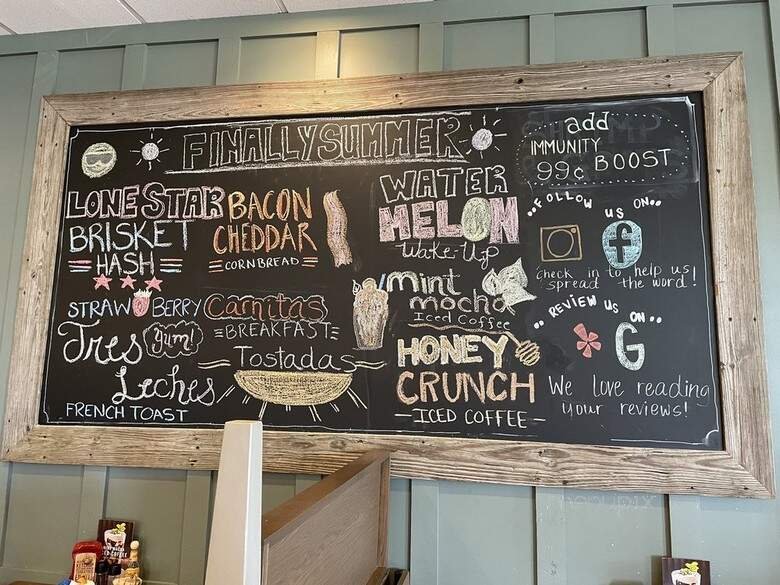 FINALLY SUMMER
LONE STAR
BRISKET
HASH
BACON
CHEDDAR
CORNBREAD
STRAWBERRY
Tres
Yum!
Leches
FRENCH TOAST
Carnitas
BREAKFAST
Tostadas
WATER
MELON
Wake-Up
mint
mocha
Iced Coffee
HONEY
CRUNCH
ICED COFFEE
add
IMMUNITY
99¢ BOOST
FOLLOW US ON
f
Check in to help us
spread the word!
REVIEW US ON
G
We love reading
your reviews!